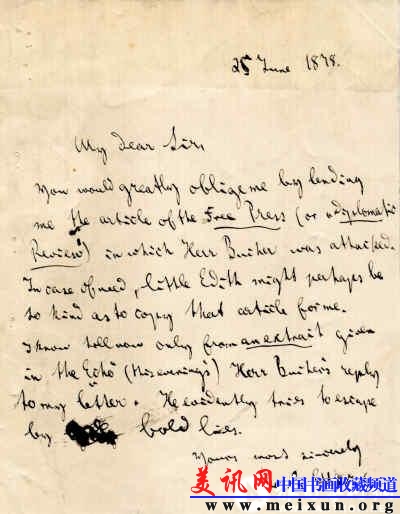 25 June 1878.
My dear Sir,
You would greatly oblige me by lending
me the article of the Free Press (or "Diplomatic
Review") in which Herr Bucher was attacked.
In case of need, little Edith might perhaps be
so kind as to copy that article for me.
I know till now only from an extrait given
in the "Echo" (this evening's) Herr Bucher's reply
to my letter. He evidently tries to escape
by bold lies.
Yours most sincerely
美讯网
中国书画收藏频道
www.meixun.org